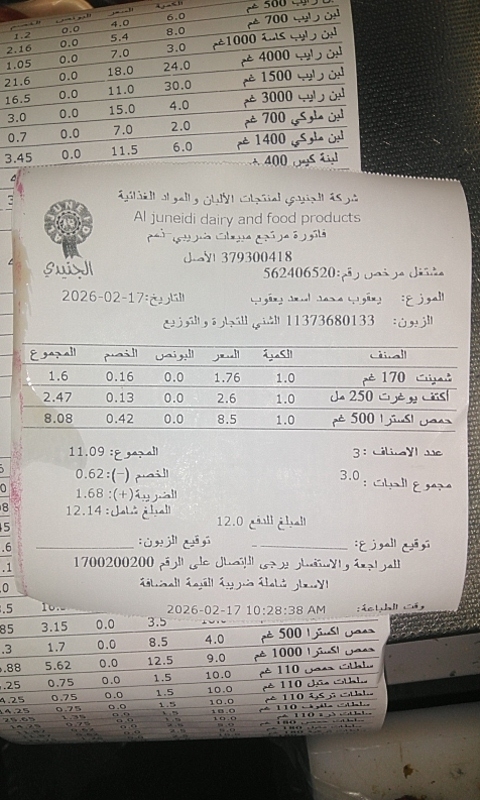 لبن رايب 500 غم 6.0 4.0 0.0 1.2
لبن رايب 700 غم 8.0 5.4 0.0 2.16
لبن رايب كاسة 1000غم 3.0 7.0 0.0 1.05
لبن رايب 4000 غم 24.0 18.0 0.0 21.6
لبن رايب 1500 غم 30.0 11.0 0.0 16.5
لبن رايب 3000 غم 4.0 15.0 0.0 3.0
لبن ملوكي 700 غم 2.0 7.0 0.0 0.7
لبن ملوكي 1400 غم 6.0 11.5 0.0 3.45
لبنة كيس 400 غم
شركة الجنيدي لمنتجات الألبان والمواد الغذائية
Al juneidi dairy and food products
فاتورة مرتجع مبيعات ضريبي-ذمم
379300418 الأصل
الجنيدي
مشتغل مرخص رقم:562406520
الموزع: يعقوب محمد اسعد يعقوب التاريخ:2026-02-17
الزبون: 11373680133 الشني للتجارة والتوزيع
الصنف الكمية السعر البونص الخصم المجموع
شمينت 170 غم 1.0 1.76 0.0 0.16 1.6
أكتف يوغرت 250 مل 1.0 2.6 0.0 0.13 2.47
حمص اكسترا 500 غم 1.0 8.5 0.0 0.42 8.08
عدد الاصناف :3 المجموع: 11.09
مجموع الحبات : 3.0 الخصم (-):0.62
الضريبة(+): 1.68
المبلغ شامل: 12.14
المبلغ للدفع 12.0
توقيع الموزع: توقيع الزبون:
للمراجعة والاستفسار يرجى الإتصال على الرقم 1700200200
الاسعار شاملة ضريبة القيمة المضافة
وقت الطباعة: 2026-02-17 10:28:38 AM
حمص اكسترا 500 غم 4.0 8.5 0.0 1.7
حمص اكسترا 1000 غم 9.0 12.5 0.0 5.62
سلطات حمص 110 غم 10.0 1.5 0.0 0.75
سلطات متبل 110 غم 10.0 1.5 0.0 0.75
سلطات تركية 110 غم 10.0 1.5 0.0 0.75
سلطات ملفوف 110 غم 18.0 1.5 0.0 1.35
سلطات ذرة 110 غم